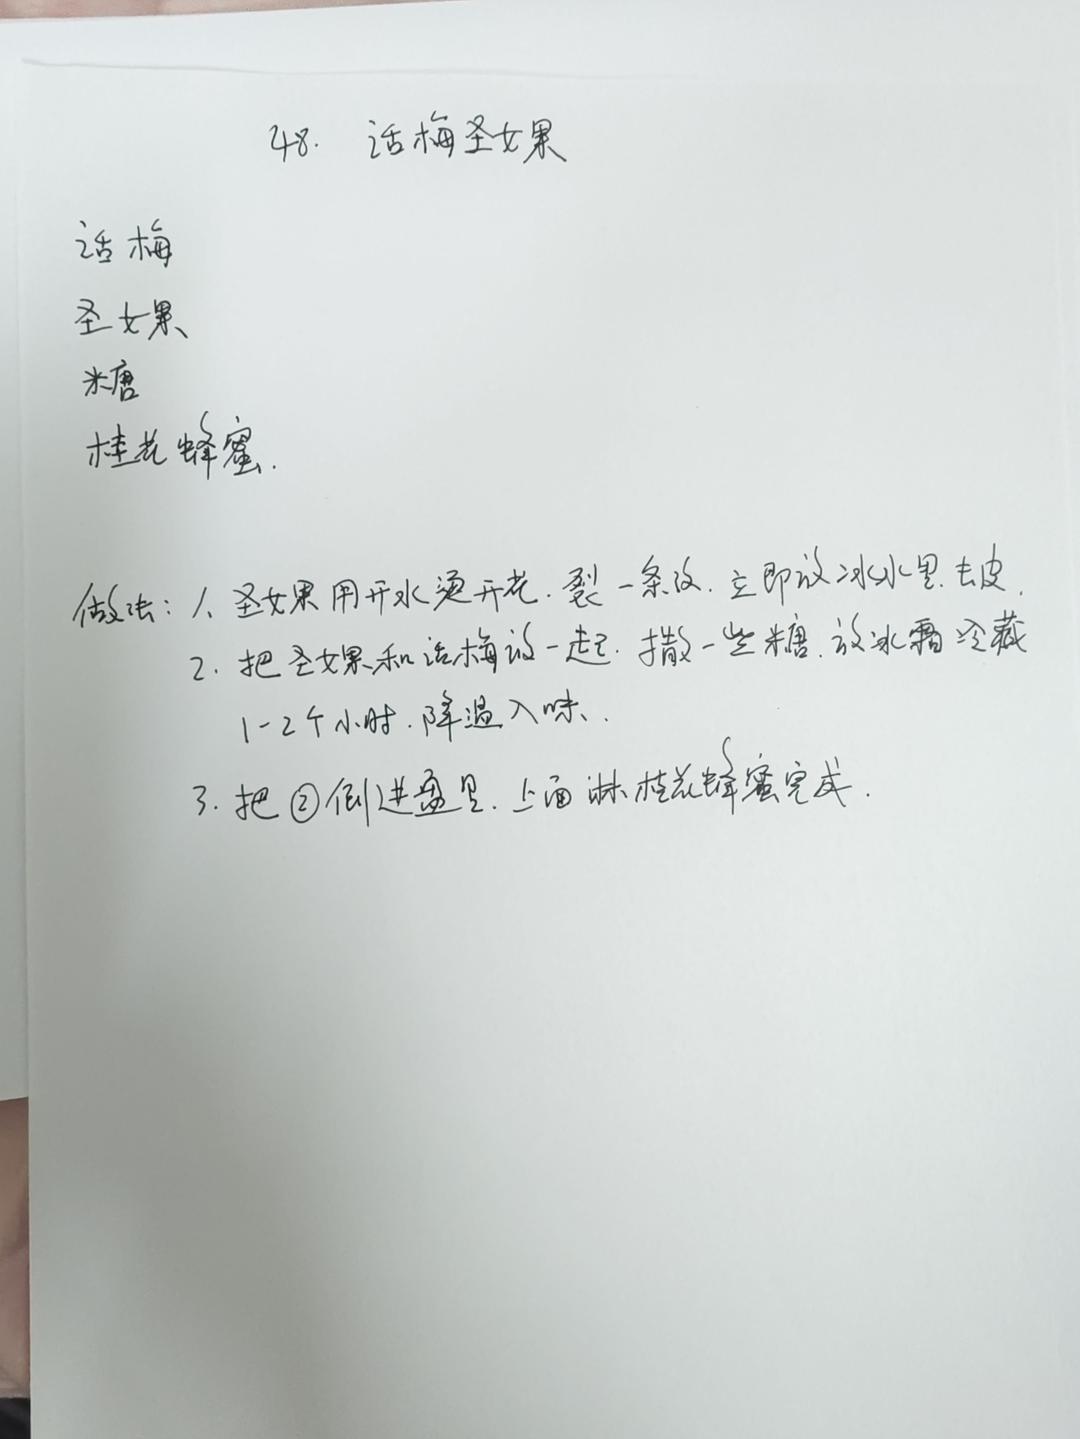 48. 话梅圣女果
话梅
圣女果
糖
桂花蜂蜜.
做法: 1、圣女果用开水烫开花.裂一条纹.立即放冰水里.去皮.
2. 把圣女果和话梅放一起.撒一些糖.放冰霜冷藏
1-2个小时.降温入味.
3. 把②倒进盘里.上面淋桂花蜂蜜完成.